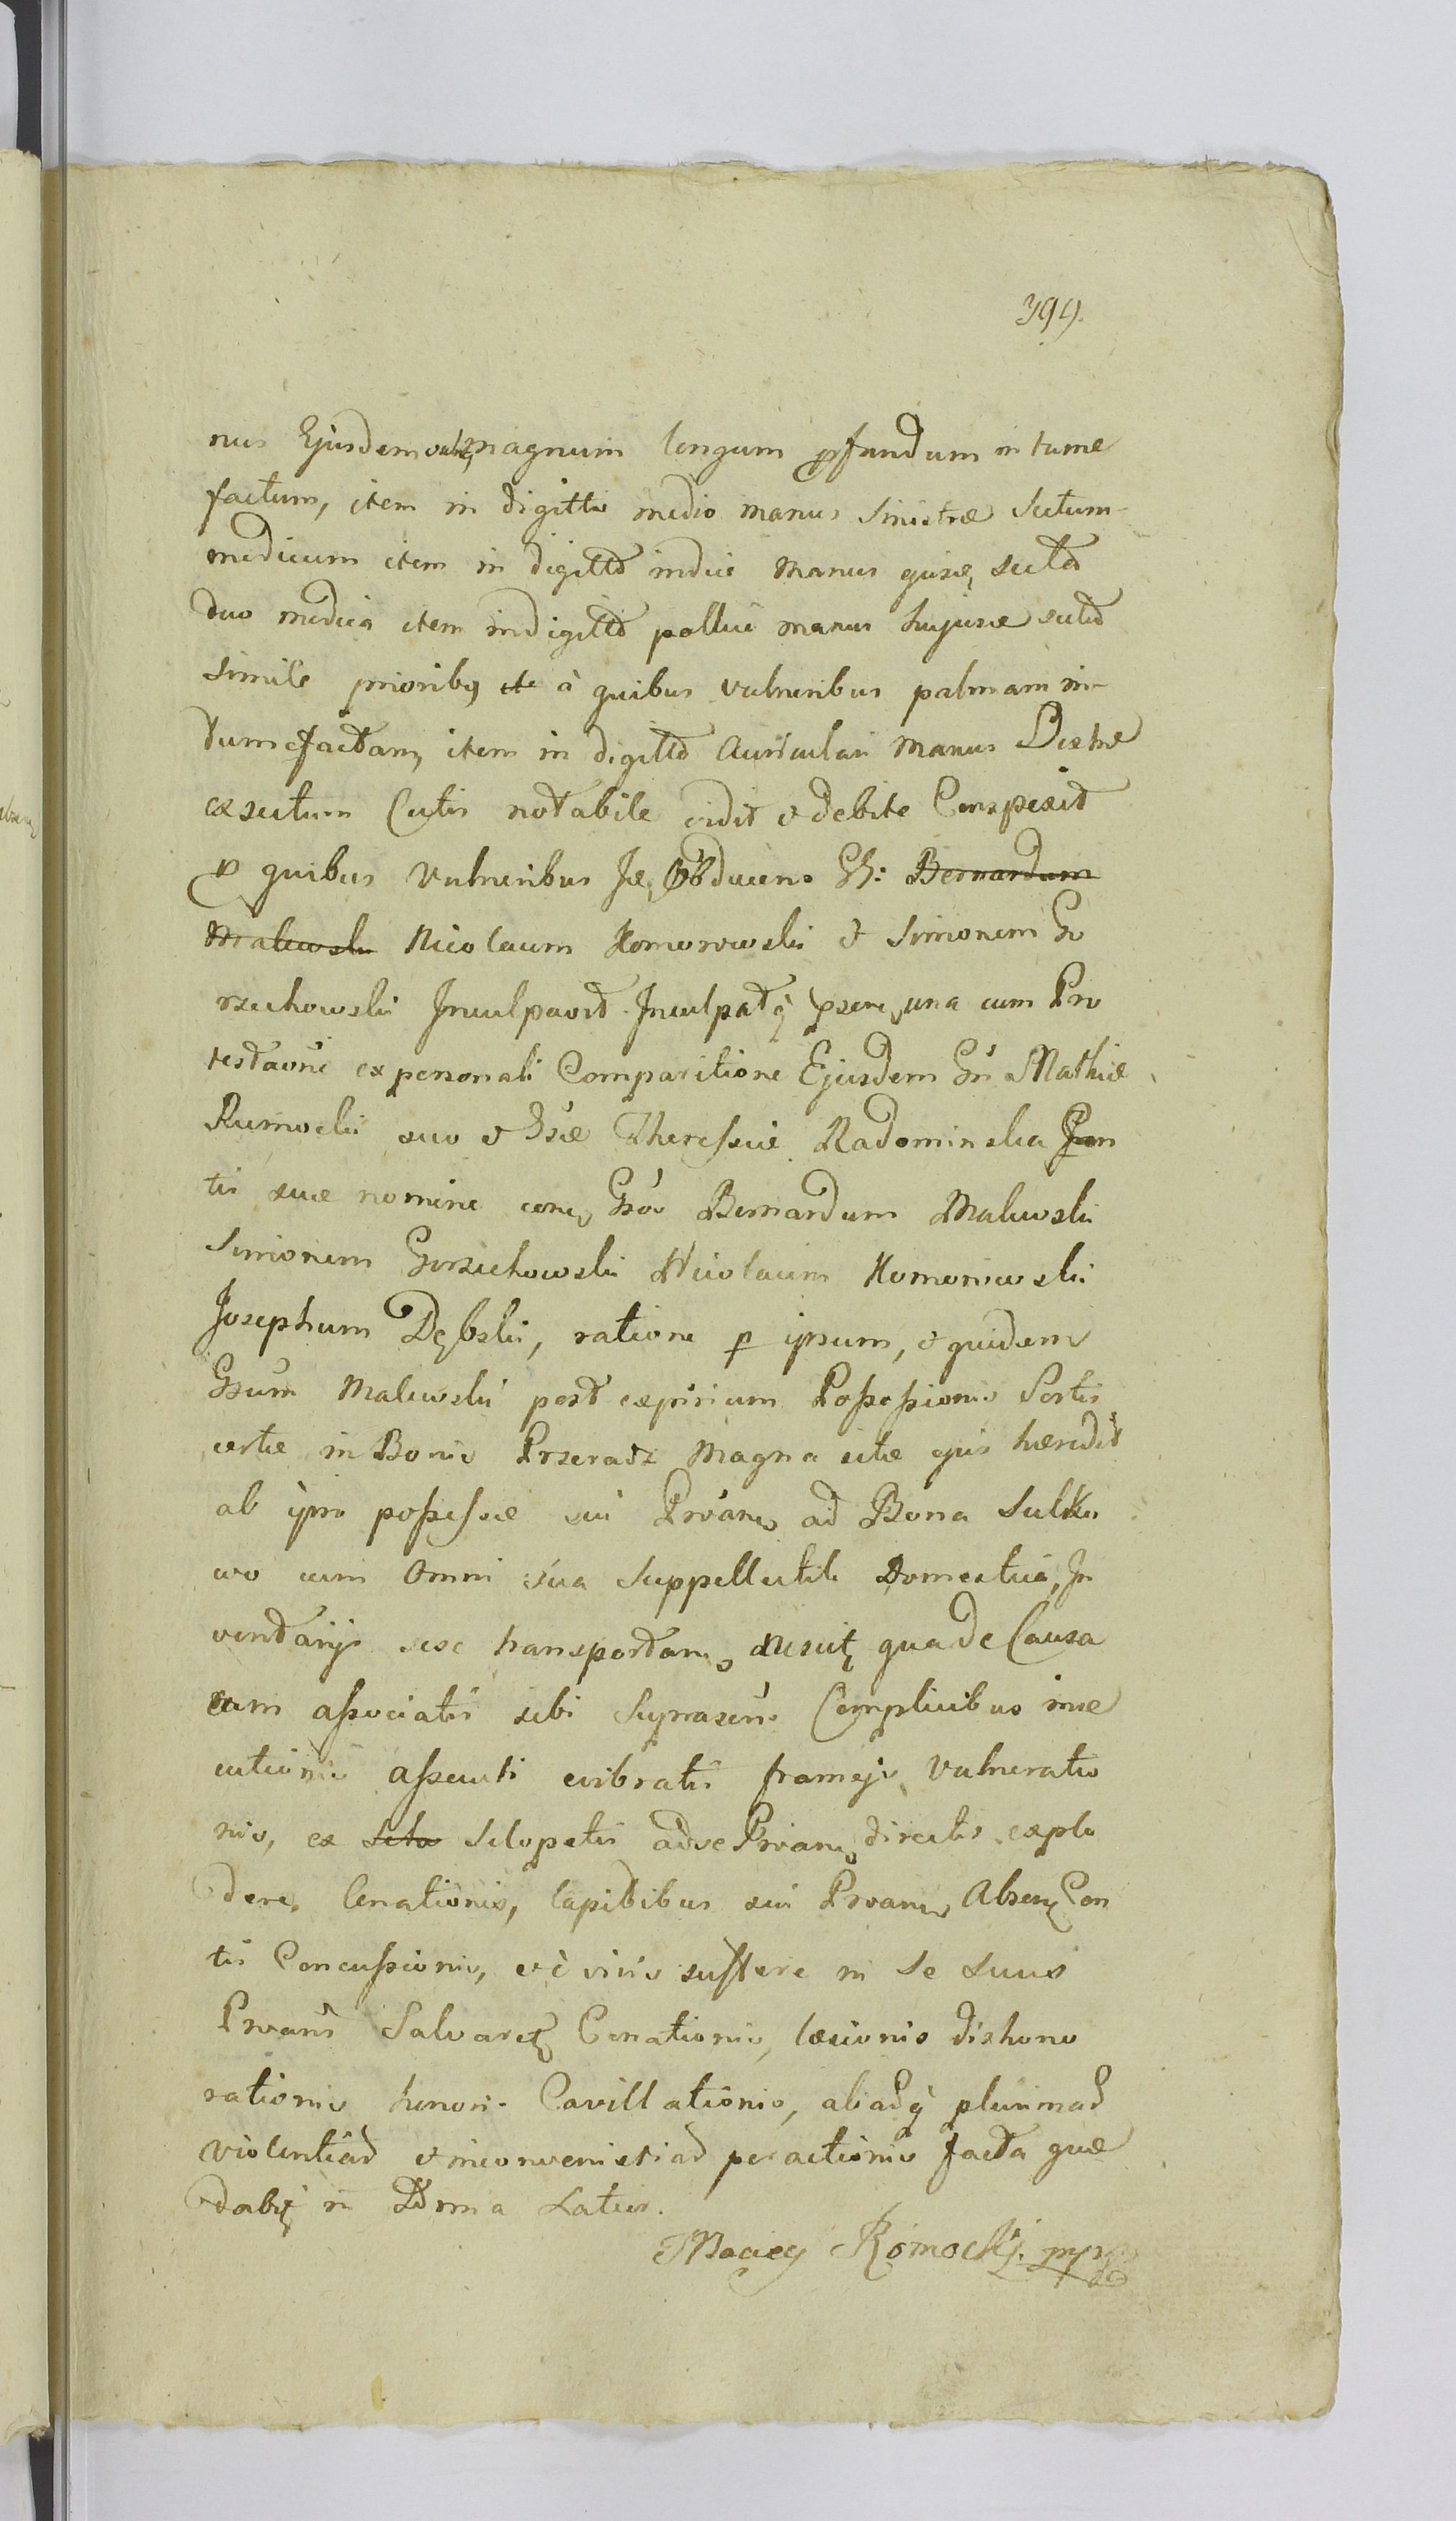 394.
nus Ejusdem vulnꝯ magnum longum profundum intume
factum, item in digitto medio manus sinistræ sectum
medicum item in digitto indice manus ejusæ, secta
duo medica item in digitto pollice manus hujusæ sectu
simile prioribꝯ à quibus vulneribus palmam in
tumefactam, item in digitto Auriculari manus Dextræ
exsectum Cutis notabile vidit et debite Conspexit
pro quibus Vulneribus Jdē Obducens Gb: Bernardum
Malewski Nicolaum Komorowski et Simonem Go
rzuchowski Jnculpavit Jnculpatqꝫ una cum Pro
testaoñe ex personali Comparitione Ejusdem Gñi Mathiæ
Rumocki suo et Gsæ Theressiæ Radominska
tis suæ nomine Gsos Bernardum Malewski
Simonem Gorzuchowski Nicolaum Komorowski
Josephum Dębski, ratione p ipsum, et quidem
Gsum Malewski post expirium Possessionis Sortis
certæ in Bonis Przeradz Magna sitæ ejus hæredit
ab ipso possessæ sui Proãñ ad Bona Sulko
wo cum Omni sua Suppellectili Domestica, Jn
ventarijs sese transportan qua de Causa
cum associatis sibi Supraseñs Complicibus inse
cutionis assecuti evibratis frameis Vulneratio
nis, ex Scło Sclopetis adse Proañ directis explo
dere, Conationis, lapidibus sui Proañ Absenꝫ Con
tis Concussionis, et è vivis sufferre ni se suus
Proans Salvaret Conationis, læsionis dishono
rationis honoris Cavillationis, aliadqꝫ plurimad
violentiad et inconvenientiad peractionis facta quæ
dabꝫ in Termino Latius.
Maciey Rómocki. mpr